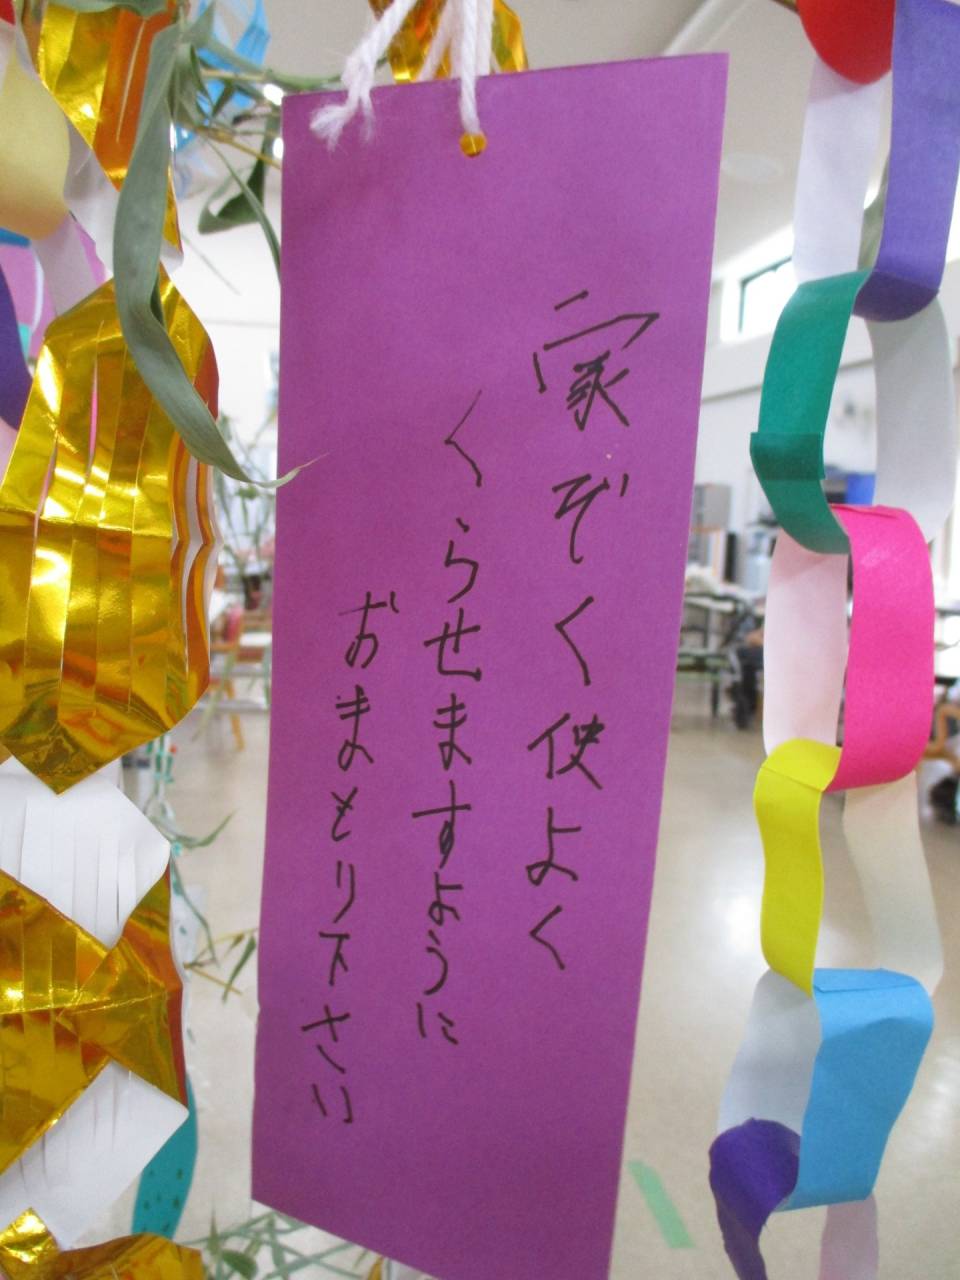 家ぞく使よく
くらせますように
おまもり下さい